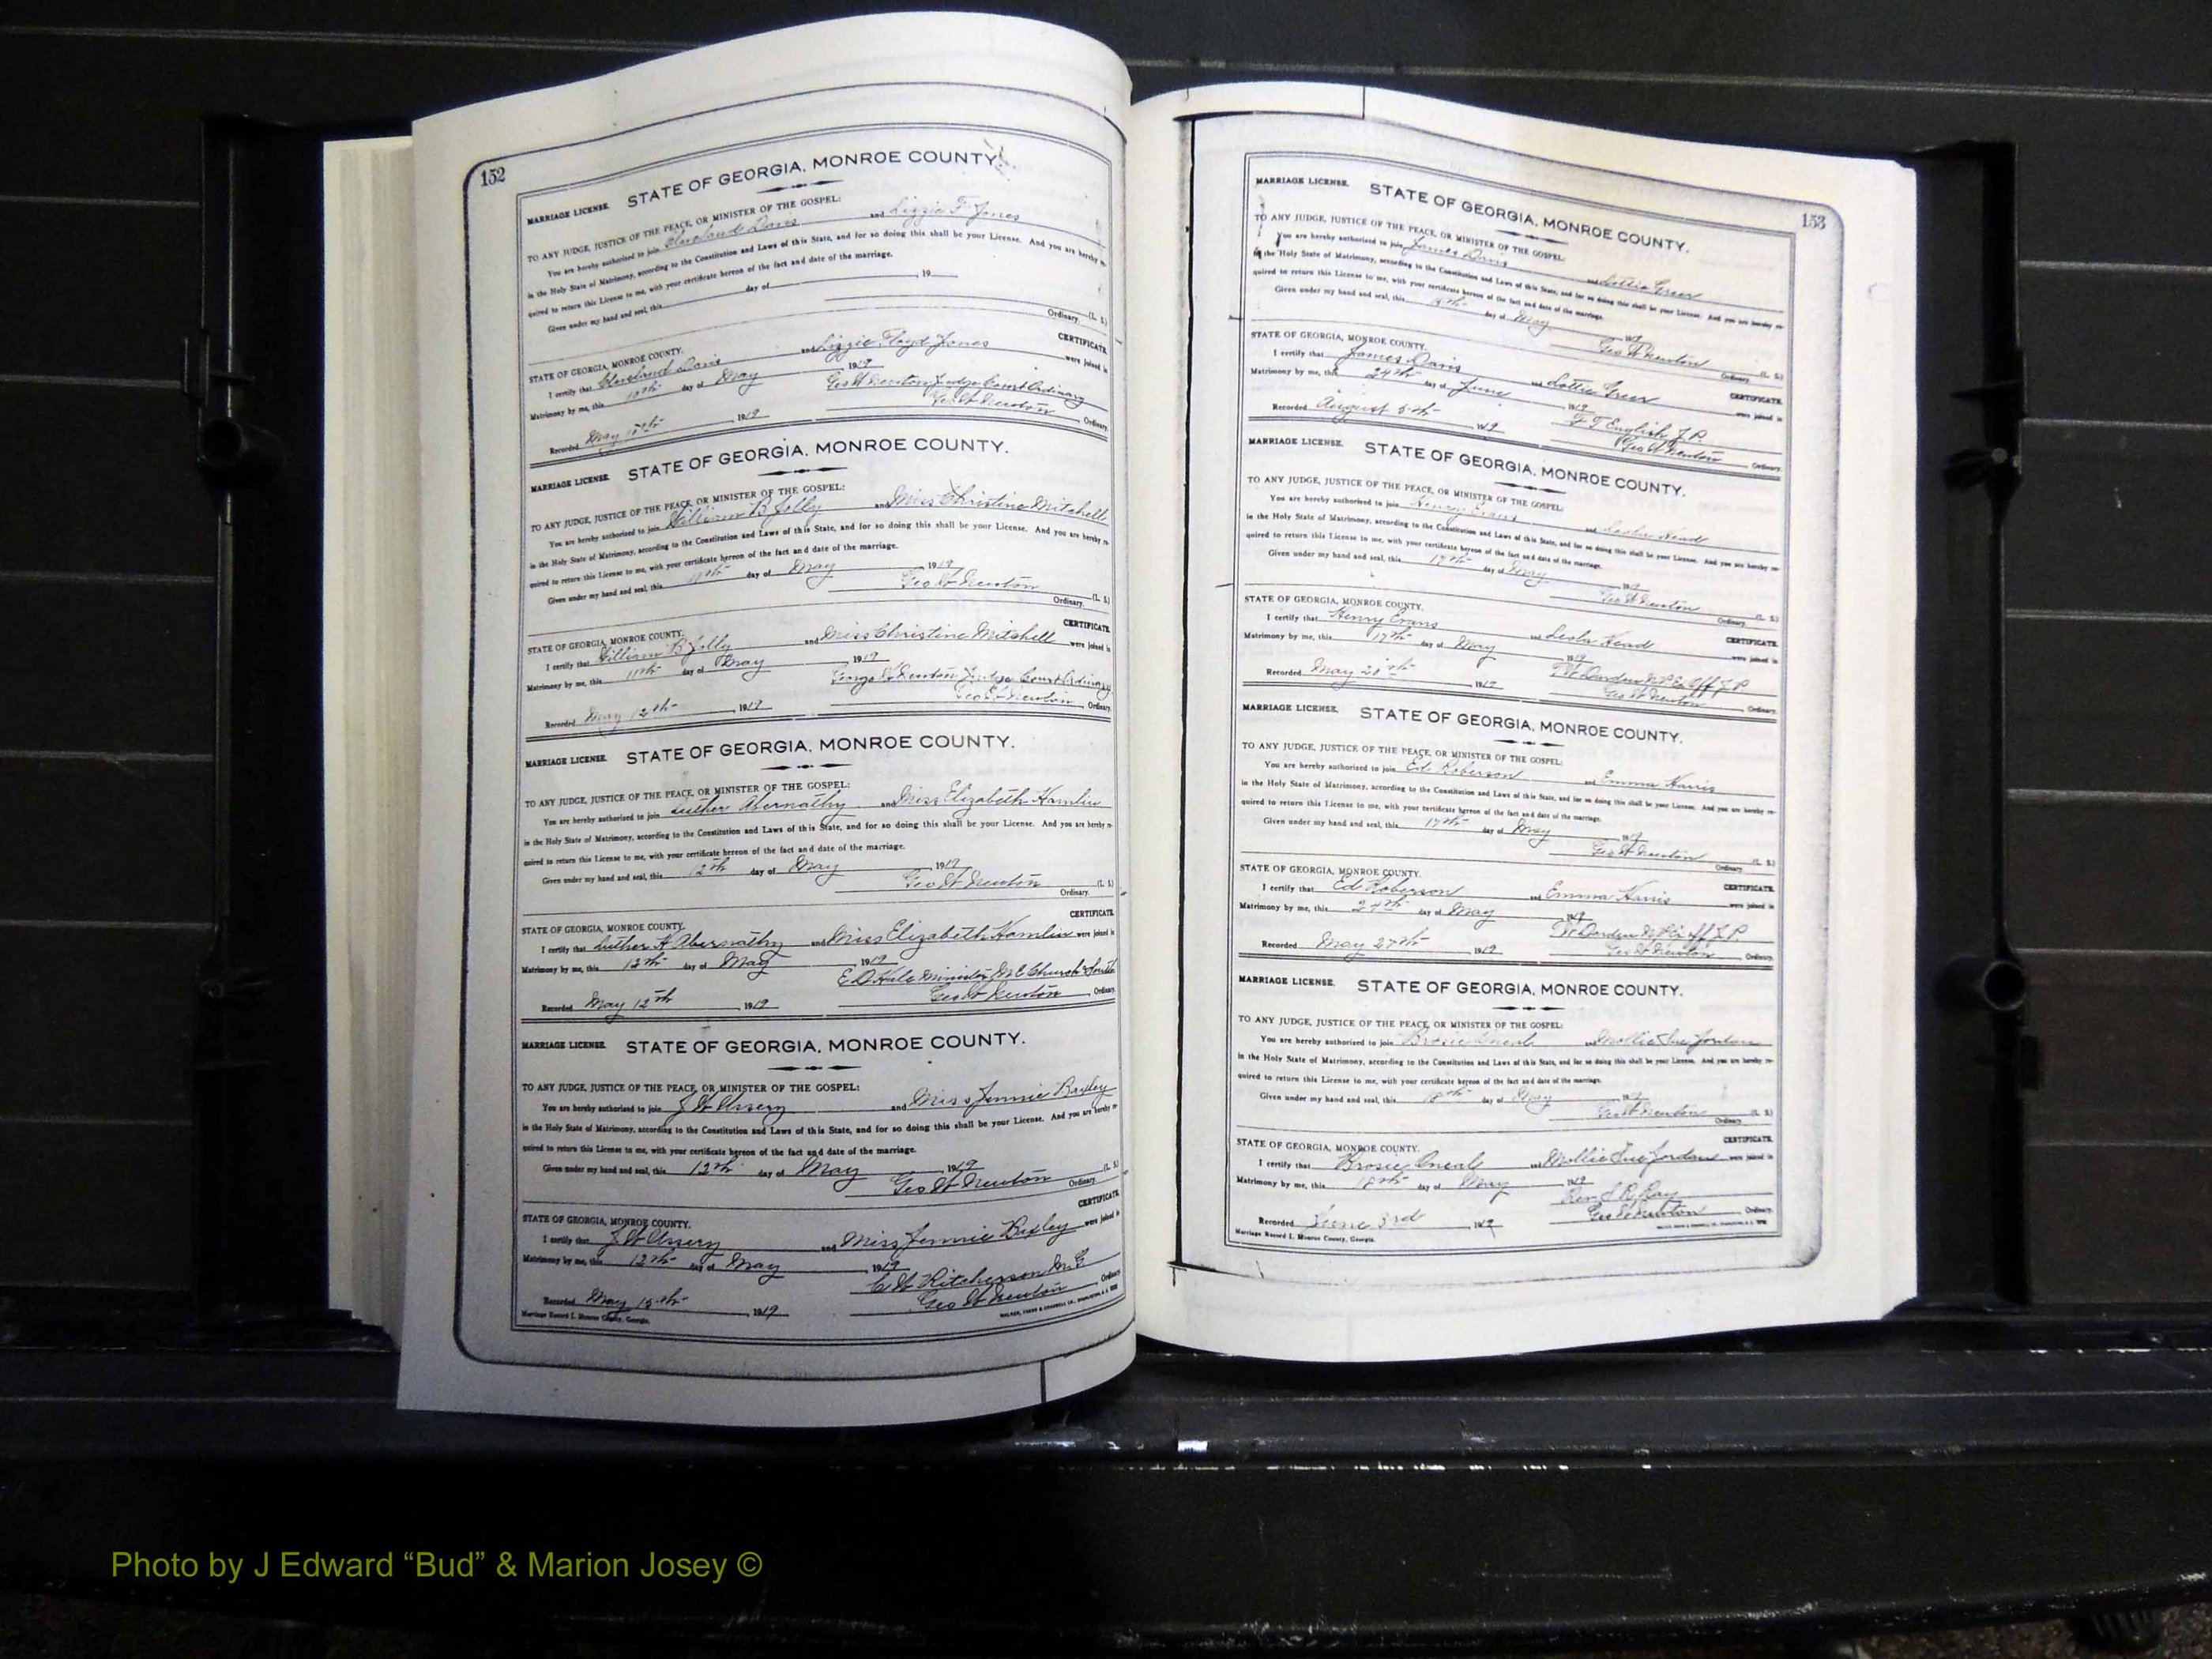 152
MARRIAGE LICENSE. STATE OF GEORGIA, MONROE COUNTY.
TO ANY JUDGE, JUSTICE OF THE PEACE, OR MINISTER OF THE GOSPEL:
You are hereby authorized to join Cleveland Davis and Lizzie F. Jones
in the Holy State of Matrimony, according to the Constitution and Laws of this State, and for so doing this shall be your License. And you are hereby re-
quired to return this License to me, with your certificate hereon of the fact and date of the marriage.
Given under my hand and seal, this day of , 19
(L. S.)
Ordinary.
STATE OF GEORGIA, MONROE COUNTY. CERTIFICATE.
I certify that Cleveland Davis and Lizzie Floyd Jones were joined in
Matrimony by me, this 10th day of May 1919
Geo W Newton Judge Court Ordinary
Recorded May 10th, 1919 Geo W Newton Ordinary.
MARRIAGE LICENSE. STATE OF GEORGIA, MONROE COUNTY.
TO ANY JUDGE, JUSTICE OF THE PEACE, OR MINISTER OF THE GOSPEL:
You are hereby authorized to join William B Jolly and Miss Christine Mitchell
in the Holy State of Matrimony, according to the Constitution and Laws of this State, and for so doing this shall be your License. And you are hereby re-
quired to return this License to me, with your certificate hereon of the fact and date of the marriage.
Given under my hand and seal, this 11th day of May 1919
Geo W Newton (L. S.)
Ordinary.
STATE OF GEORGIA, MONROE COUNTY. CERTIFICATE.
I certify that William B Jolly and Miss Christine Mitchell were joined in
Matrimony by me, this 11th day of May 1919
George W Newton Judge Court Ordinary
Recorded May 12th, 1919 Geo W Newton, Ordinary.
MARRIAGE LICENSE. STATE OF GEORGIA, MONROE COUNTY.
TO ANY JUDGE, JUSTICE OF THE PEACE, OR MINISTER OF THE GOSPEL:
You are hereby authorized to join Luther Abernathy and Miss Elizabeth Hamlin
in the Holy State of Matrimony, according to the Constitution and Laws of this State, and for so doing this shall be your License. And you are hereby re-
quired to return this License to me, with your certificate hereon of the fact and date of the marriage.
Given under my hand and seal, this 12th day of May, 1919
Geo W Newton (L. S.)
Ordinary.
STATE OF GEORGIA, MONROE COUNTY. CERTIFICATE.
I certify that Luther H Abernathy and Miss Elizabeth Hamlin were joined in
Matrimony by me, this 12th day of May, 1919
E D Hale Minister M E Church South
Recorded May 12th, 1919 Geo W Newton, Ordinary.
MARRIAGE LICENSE. STATE OF GEORGIA, MONROE COUNTY.
TO ANY JUDGE, JUSTICE OF THE PEACE, OR MINISTER OF THE GOSPEL:
You are hereby authorized to join J W Ussery and Miss Jennie Bixley
in the Holy State of Matrimony, according to the Constitution and Laws of this State, and for so doing this shall be your License. And you are hereby re-
quired to return this License to me, with your certificate hereon of the fact and date of the marriage.
Given under my hand and seal, this 12th day of May, 1919
Geo W Newton (L. S.)
Ordinary.
STATE OF GEORGIA, MONROE COUNTY. CERTIFICATE.
I certify that J W Ussery and Miss Jennie Bixley were joined in
Matrimony by me, this 12th day of May, 1919
C W Kitcherson M.G.
Recorded May 15th, 1919 Geo W Newton, Ordinary.
Marriage Record I. Monroe County, Georgia.
153
MARRIAGE LICENSE. STATE OF GEORGIA, MONROE COUNTY.
TO ANY JUDGE, JUSTICE OF THE PEACE, OR MINISTER OF THE GOSPEL:
You are hereby authorized to join James Davis and Lottie Greer
in the Holy State of Matrimony, according to the Constitution and Laws of this State, and for so doing this shall be your License. And you are hereby re-
quired to return this License to me, with your certificate hereon of the fact and date of the marriage.
Given under my hand and seal, this day of May 1919
Geo W Newton (L. S.)
Ordinary.
STATE OF GEORGIA, MONROE COUNTY. CERTIFICATE.
I certify that James Davis and Lottie Greer were joined in
Matrimony by me, this 24th day of June 1919
F T English J.P.
Recorded August 5th 1919 Geo W Newton Ordinary.
MARRIAGE LICENSE. STATE OF GEORGIA, MONROE COUNTY.
TO ANY JUDGE, JUSTICE OF THE PEACE, OR MINISTER OF THE GOSPEL:
You are hereby authorized to join Henry Evans and Lesla Head
in the Holy State of Matrimony, according to the Constitution and Laws of this State, and for so doing this shall be your License. And you are hereby re-
quired to return this License to me, with your certificate hereon of the fact and date of the marriage.
Given under my hand and seal, this 17th day of May 1919
Geo W Newton (L. S.)
Ordinary.
STATE OF GEORGIA, MONROE COUNTY. CERTIFICATE.
I certify that Henry Evans and Lesla Head were joined in
Matrimony by me, this 17th day of May 1919
W Darden N.P. Ex Off J.P.
Recorded May 1919 Geo W Newton Ordinary.
MARRIAGE LICENSE. STATE OF GEORGIA, MONROE COUNTY.
TO ANY JUDGE, JUSTICE OF THE PEACE, OR MINISTER OF THE GOSPEL:
You are hereby authorized to join Ed Roberson and Emma Harris
in the Holy State of Matrimony, according to the Constitution and Laws of this State, and for so doing this shall be your License. And you are hereby re-
quired to return this License to me, with your certificate hereon of the fact and date of the marriage.
Given under my hand and seal, this 17th day of May 1919
Geo W Newton (L. S.)
Ordinary.
STATE OF GEORGIA, MONROE COUNTY. CERTIFICATE.
I certify that Ed Roberson and Emma Harris were joined in
Matrimony by me, this 24th day of May 1919
W Darden N.P. Ex off J.P.
Recorded May 27th 1919 Geo W Newton Ordinary.
MARRIAGE LICENSE. STATE OF GEORGIA, MONROE COUNTY.
TO ANY JUDGE, JUSTICE OF THE PEACE, OR MINISTER OF THE GOSPEL:
You are hereby authorized to join Brosie Oneal and Mollie Sue Jordan
in the Holy State of Matrimony, according to the Constitution and Laws of this State, and for so doing this shall be your License. And you are hereby re-
quired to return this License to me, with your certificate hereon of the fact and date of the marriage.
Given under my hand and seal, this 18th day of May 1919
Geo W Newton (L. S.)
Ordinary.
STATE OF GEORGIA, MONROE COUNTY. CERTIFICATE.
I certify that Brosie Oneal and Mollie Sue Jordan were joined in
Matrimony by me, this 18th day of May 1919
Rev. S R Ray
Recorded June 3rd, 1919 Geo W Newton Ordinary.
Marriage Record I. Monroe County, Georgia.
Photo by J Edward “Bud” & Marion Josey ©